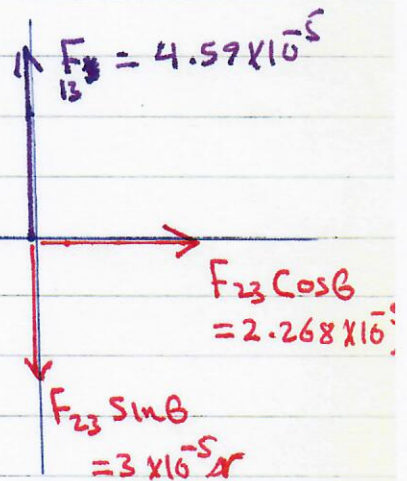 F₁₃ = 4.59×10⁻⁵
F₂₃ Cosθ
= 2.268×10⁻
F₂₃ sinθ
= 3×10⁻⁵ N